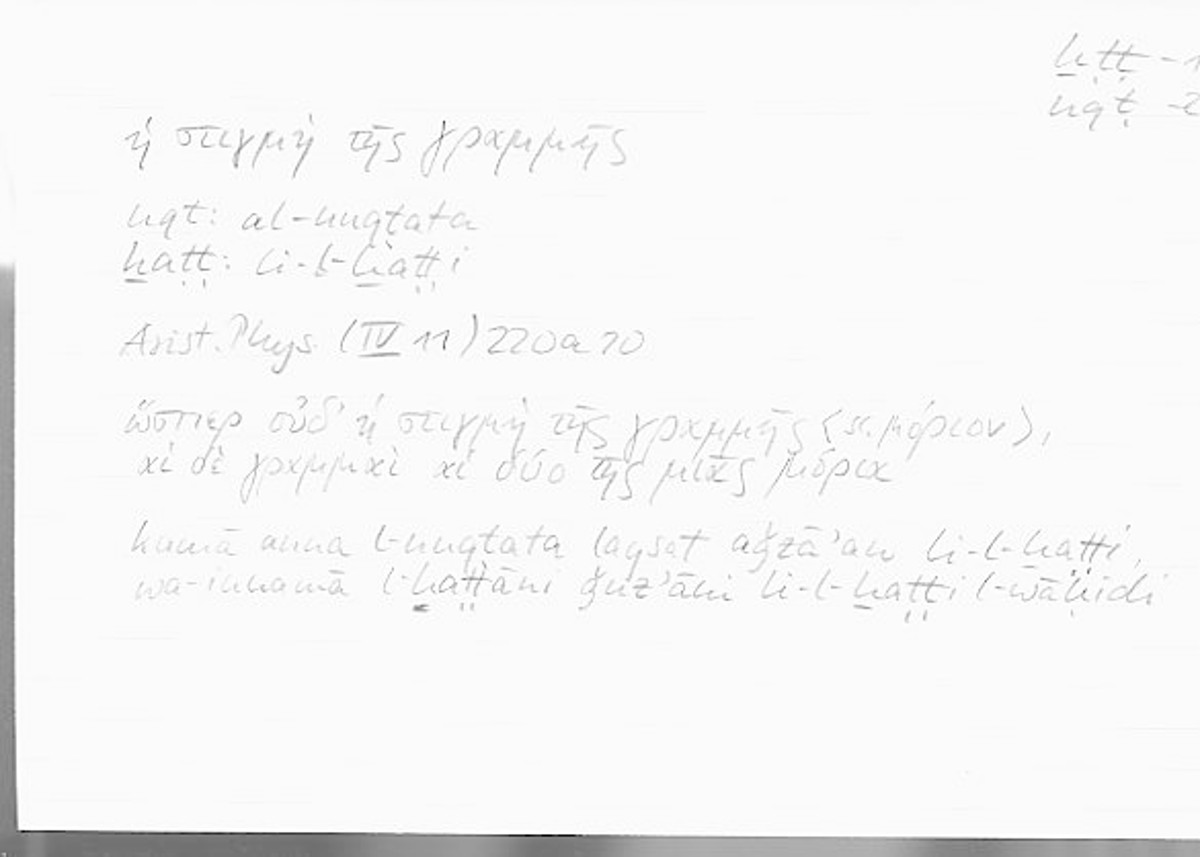 ḫṭṭ - 1
nqṭ - 2
ἡ στιγμὴ τῆς γραμμῆς
nqt: al-nuqtata
ḫaṭṭ: li-l-ḫaṭṭi
Arist. Phys. (IV 11) 220a20
ὥσπερ οὐδ' ἡ στιγμὴ τῆς γραμμῆς <sc. μόριον>,
αἱ δὲ γραμμαὶ αἱ δύο τῆς μιᾶς μόρια
kamā anna l-nuqtata laysat aǧzā'an li-l-ḫaṭṭi,
wa-innamā l-ḫaṭṭāni ǧuz'āni li-l-ḫaṭṭi l-wāḥidi